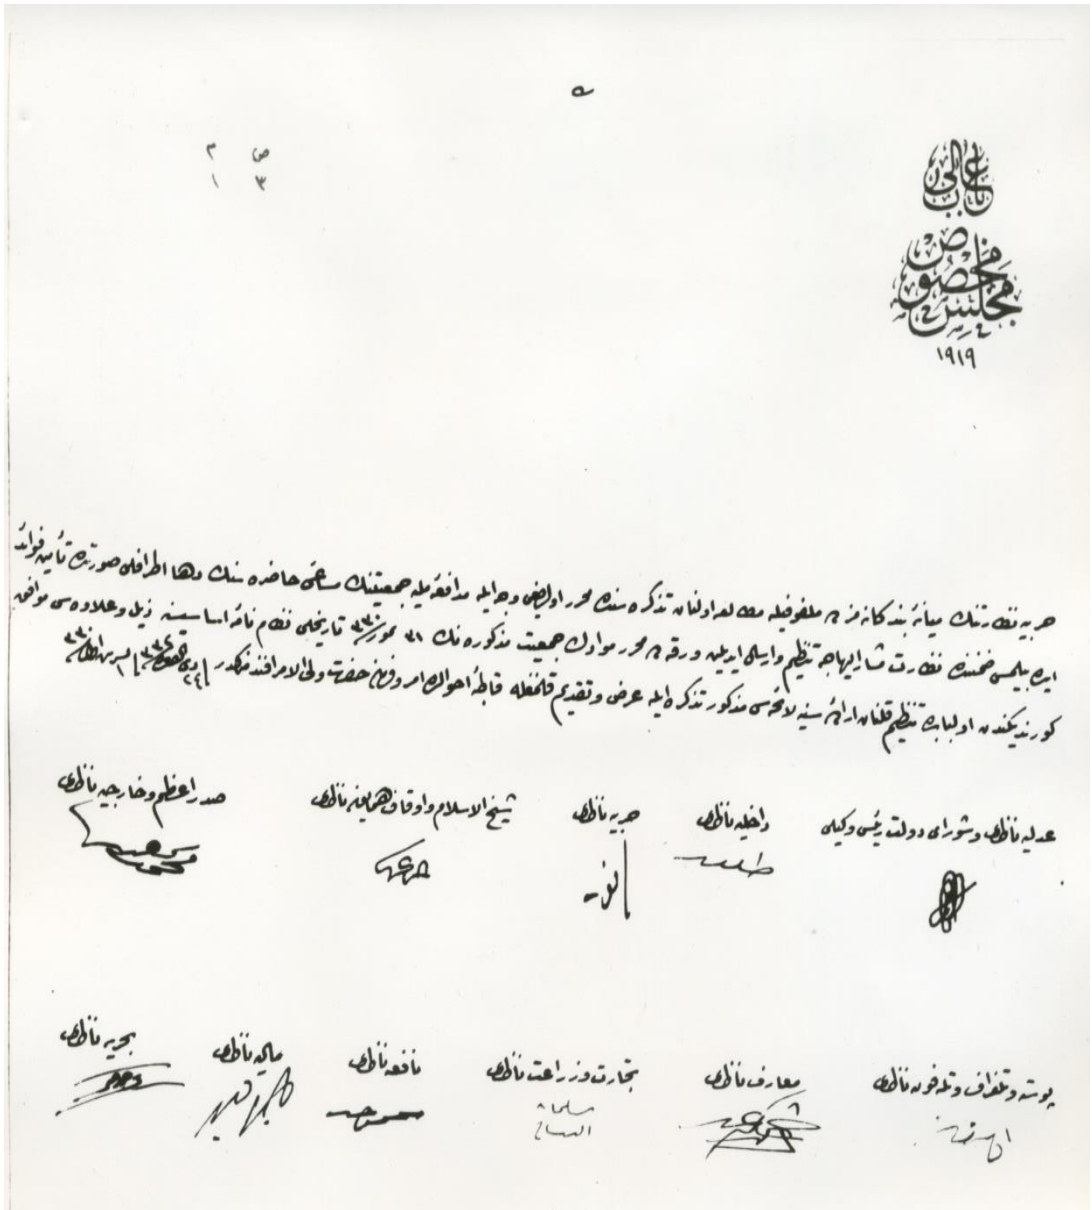 باب عالی
مجلس مخصوص
١٩١٩
حربیه نظارتنك میانهٔ بندكانه مزده ملفوفیله مطالعه اولنان تذكره سنده محرر اولدیغی وجهله مدافعهٔ ملیه جمعیتنك مساعئ حاضره سنك دها اطرافلی صورتده تأمین فوائد
ایده بیلمسی ضمننده نظارت مشار الیهاجه تنظیم و ارسال ایدیلن ورقه ده محرر موادك جمعیت مذكوره نك ٣١ تموز ٣٣٠ تاریخلی نظام نامهٔ اساسیسنه ذیل و علاوه سی موافق
كورندیكندن اولبابده تنظیم قلنان ارادهٔ سنیه لایحه سی مذكور تذكره ایله عرض و تقدیم قلنمغله قاطبهٔ احوالده امر و فرمان حضرت ولی الامر افندمزكدر
صدر اعظم و خارجیه ناظری
شیخ الاسلام و اوقاف همایون ناظری
حربیه ناظری
داخلیه ناظری
عدلیه ناظری و شورای دولت رئیس وكیلی
بحریه ناظری
مالیه ناظری
نافعه ناظری
تجارت و زراعت ناظری
سلیمان
البستانی
معارف ناظری
پوسته و تلغراف و تلفون ناظری